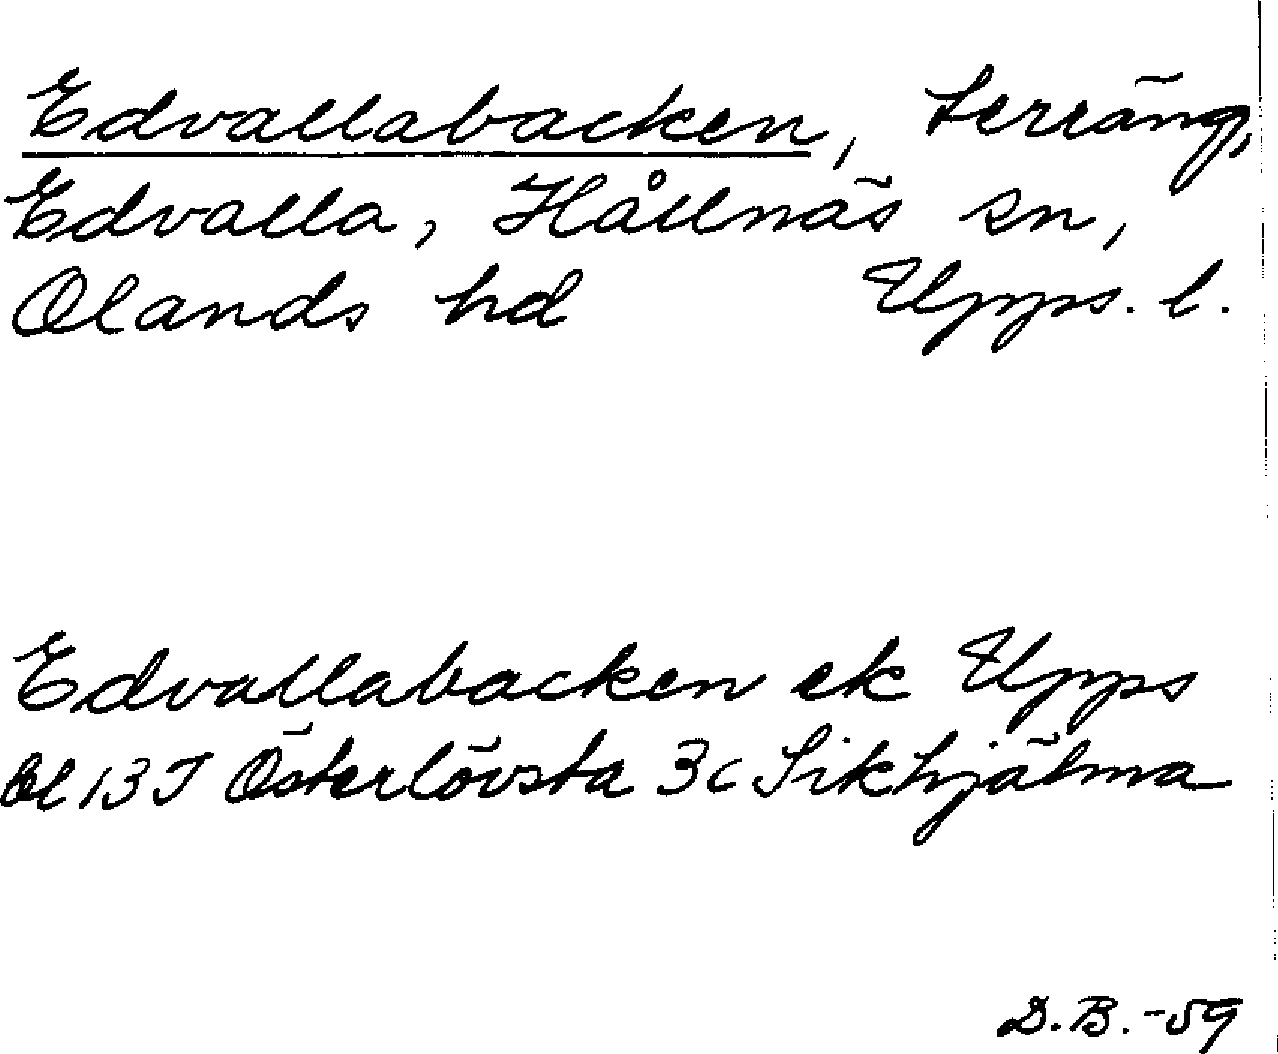 Edvallabacken, terräng,
Edvalla, Hållnäs sn,
Olands hd Upps. l.
Edvallabacken ek Upps
bl 13 I Österlövsta 3c Sikhjälma
D.B.-59